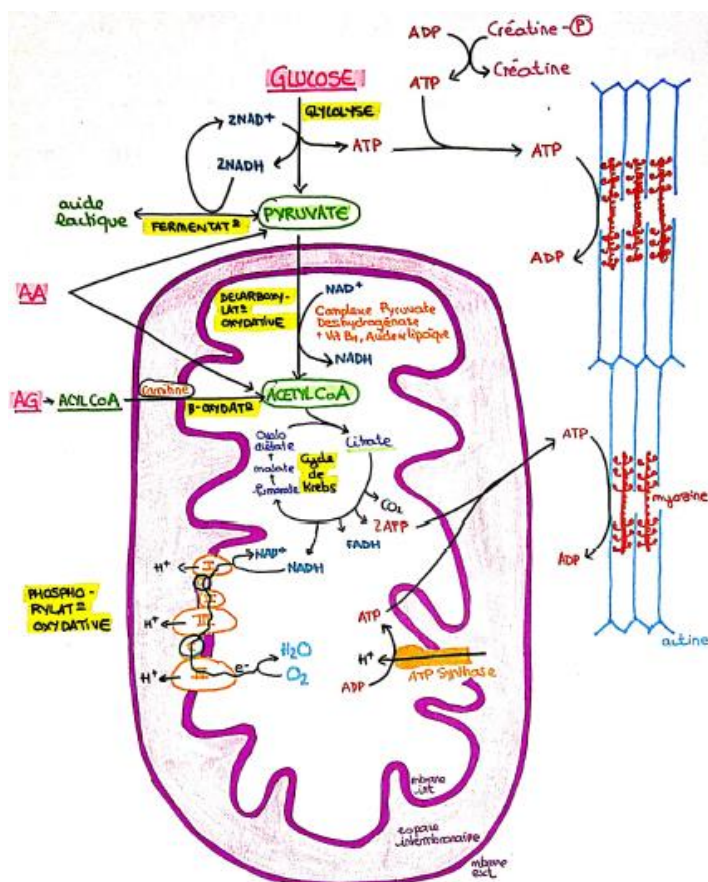 ADP
Créatine-P
ATP
Créatine
GLUCOSE
GLYCOLYSE
2NAD+
2NADH
ATP
ATP
ADP
acide
lactique
FERMENTATº
PYRUVATE
AA
DECARBOXY-
LATº
OXYDATIVE
NAD+
Complexe Pyruvate
Deshydrogénase
+ Vit B1, Acide lipoïque
NADH
AG
ACYLCoA
Carnitine
B-OXYDATº
ACETYLCoA
Oxalo
acétate
malate
fumarate
Cycle
de
Krebs
Citrate
CO2
2ATP
FADH
NAD+
NADH
PHOSPHO-
RYLATº
OXYDATIVE
H+
I
H+
III
H+
e-
H2O
O2
ATP
ADP
H+
ATP Synthase
ATP
ADP
myosine
actine
mbrane
int
espace
intermembranaire
mbrane
ext